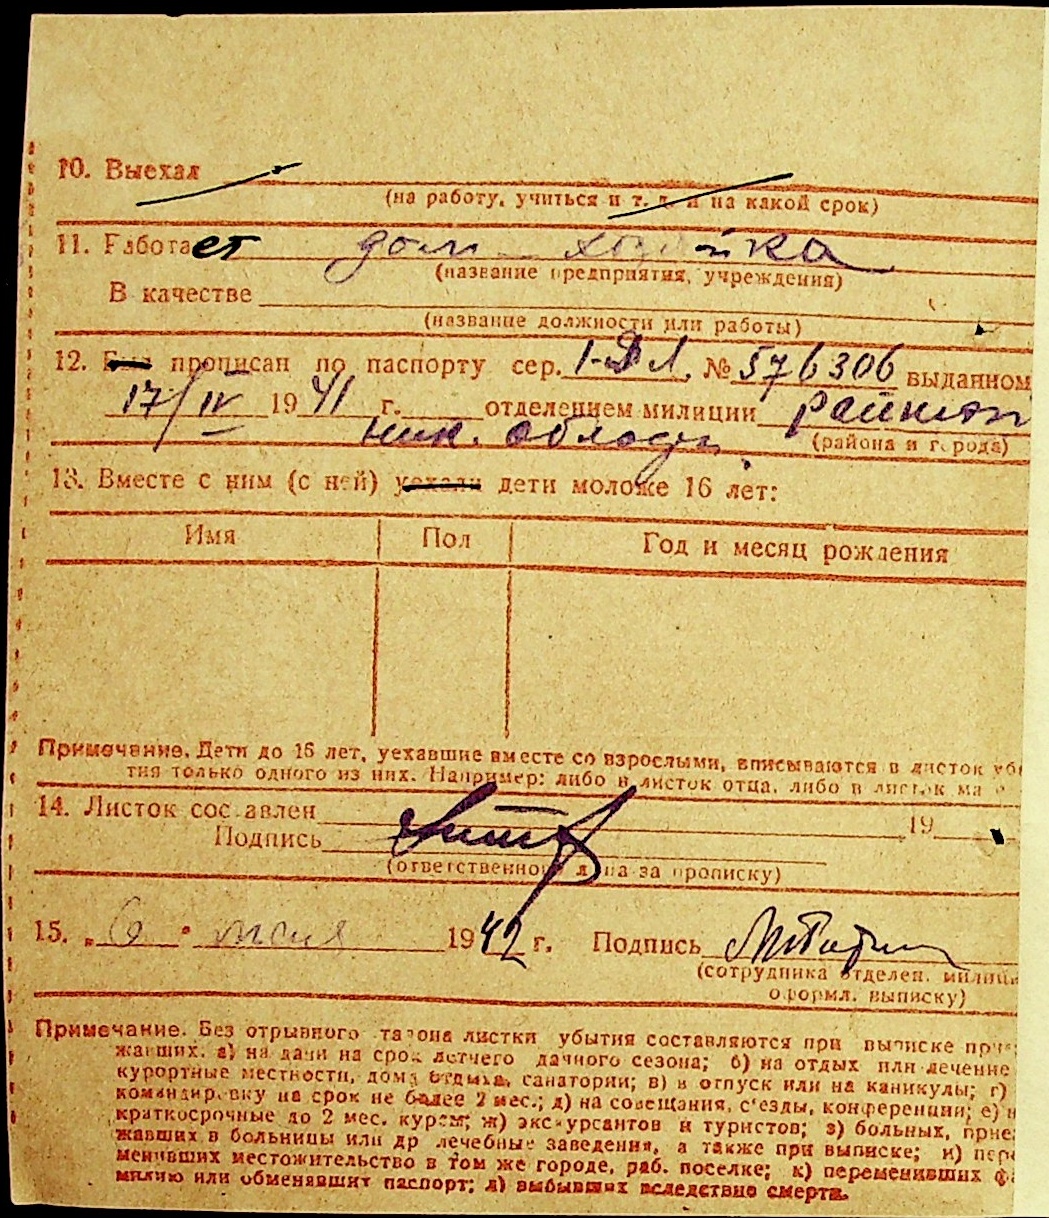 10. Выехал
(на работу, учиться и т. д. и на какой срок)
11. Работает дом. хозяйка
(название предприятия, учреждения)
В качестве
(название должности или работы)
12. Был прописан по паспорту сер. 1-ДЛ. № 576306 выданном
17/IV 1941 г. отделением милиции
ник. области
(района и города)
13. Вместе с ним (с ней) уехали дети моложе 16 лет:
Имя Пол Год и месяц рождения
Примечание. Дети до 16 лет, уехавшие вместе со взрослыми, вписываются в листок убы
тия только одного из них. Например: либо в листок отца, либо в листок ма
14. Листок составлен 19
Подпись
(ответственного лица за прописку)
15. „6" мая 1942 г. Подпись
(сотрудника отделен. милици
оформл. выписку)
Примечание. Без отрывного талона листки убытия составляются при выписке прие
жавших: а) на дачи на срок летнего дачного сезона; б) на отдых или лечение
курортные местности, дома отдыха, санатории; в) в отпуск или на каникулы; г)
командировку на срок не более 2 мес.; д) на совещания, с'езды, конференции; е) н
краткосрочные до 2 мес. курсы; ж) экскурсантов и туристов; з) больных, прие
жавших в больницы или др лечебные заведения, а также при выписке; и) пере
менивших местожительство в том же городе, раб. поселке; к) переменивших фа
милию или обменявшит паспорт; л) выбывших вследствие смерти.